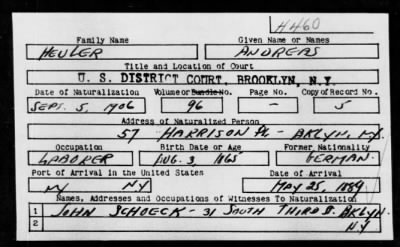 H460
Family Name Given Name or Names
HEULER ANDREAS
Title and Location of Court
U. S. DISTRICT COURT, BROOKLYN, N.Y.
Date of Naturalization Volume or Bundle No. Page No. Copy of Record No.
SEPT. 5, 1906 96 - 5
Address of Naturalized Person
57 HARRISON PL - BKLYN, N.Y.
Occupation Birth Date or Age Former Nationality
LABORER AUG. 3, 1865 GERMAN.
Port of Arrival in the United States Date of Arrival
NY NY MAY 25, 1889
Names, Addresses and Occupations of Witnesses To Naturalization
1 JOHN SCHOECK - 31 SOUTH THIRD S. BKLYN.
2 NY